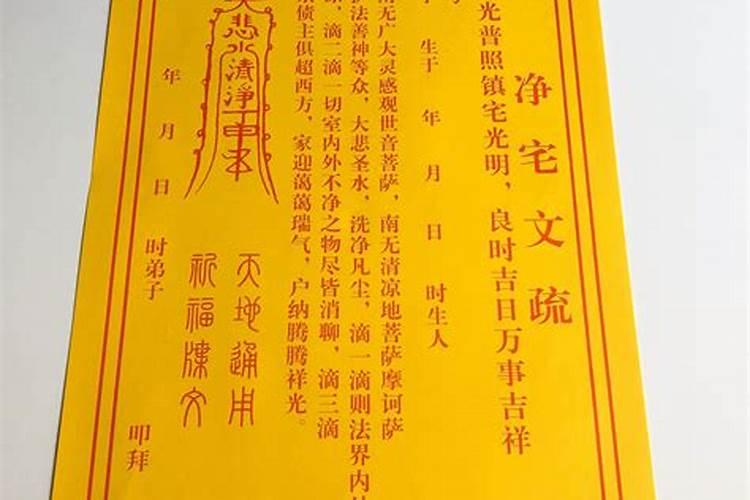 净宅文疏
光普照镇宅光明，良时吉日万事吉祥
生于 年 月 日 时生人
南无广大灵感观世音菩萨，南无清凉地菩萨摩诃萨
护法善神等众，大悲圣水，洗净凡尘，滴一滴则法界内外
滴二滴一切室内外不净之物尽皆消聊，滴三滴
债主俱超西方，家迎蔼蔼瑞气，户纳腾腾祥光。
大悲水清净
天地通用
祈福牒文
年 月 日 时弟子 叩拜